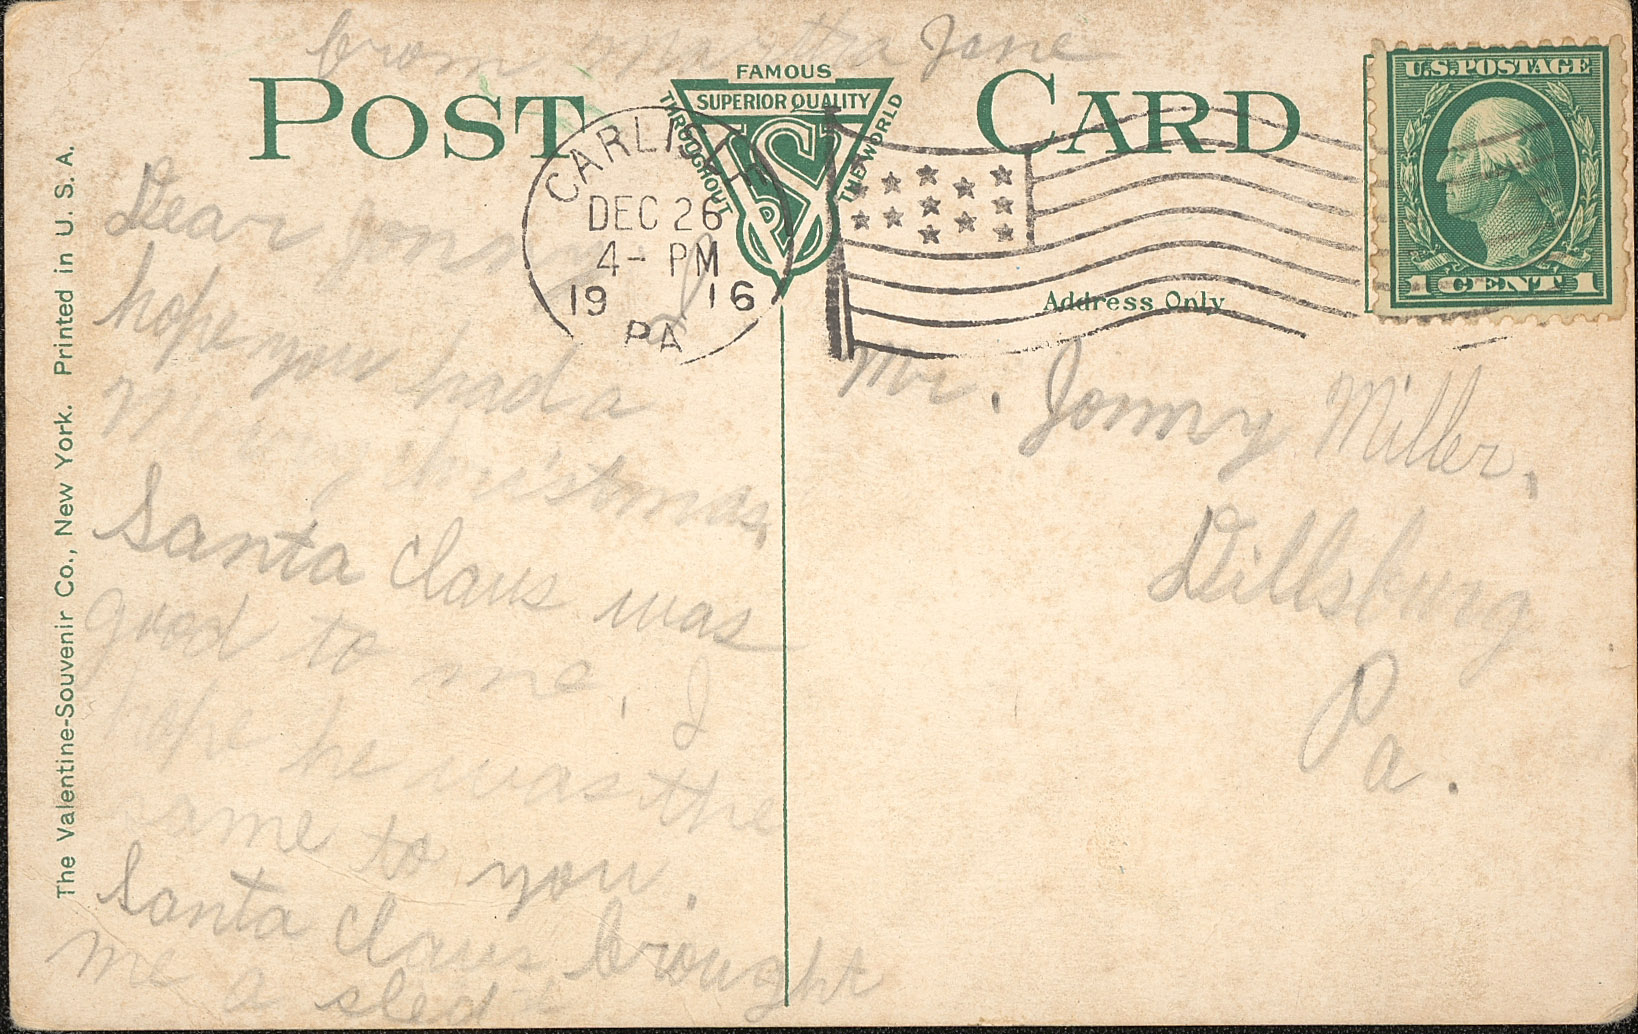 from Martha Jane
POST CARD
FAMOUS
SUPERIOR QUALITY
THROUGHOUT THE WORLD
VS Co
CARLISLE
DEC 26
4- PM
19 16
PA
U.S. POSTAGE
1 CENT 1
Address Only
The Valentine-Souvenir Co., New York. Printed in U. S. A.
Dear Jonny I
hope you had a
Merry Christmas,
Santa Claus was
good to me, I
hope he was the
same to you.
Santa Claus brought
me a sled
Mr. Jonny Miller,
Dillsburg
Pa.